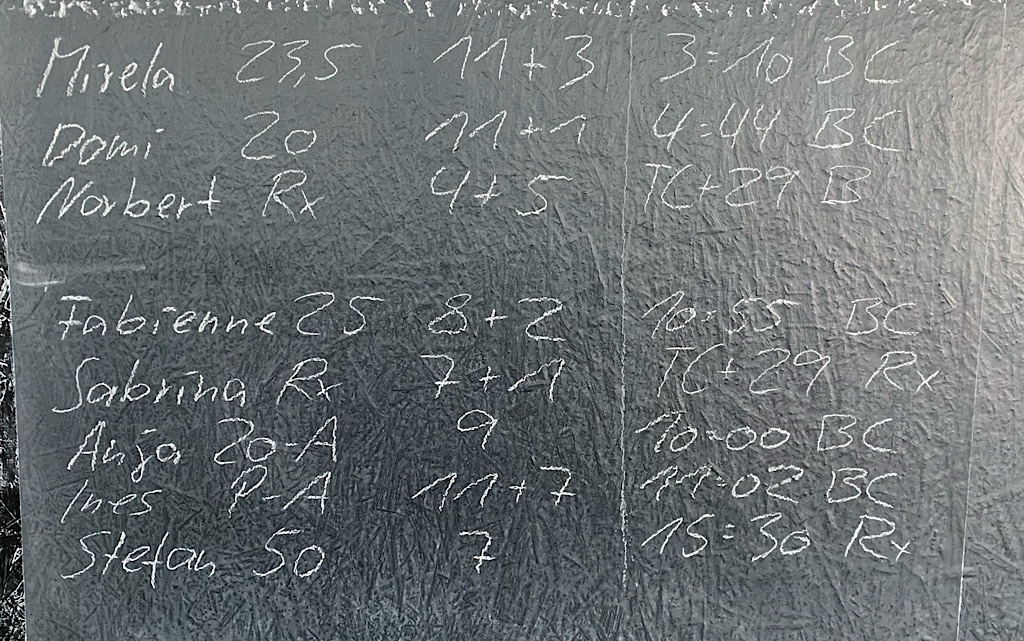 Mirela 23,5 11+3 3:10 BC
Domi 20 11+1 4:44 BC
Norbert Rx 4+5 TC+29 B
Fabienne 25 8+2 10:55 BC
Sabrina Rx 7+11 TC+29 Rx
Anja 20-A 9 10:00 BC
Ines P-A 11+7 11:02 BC
Stefan 50 7 15:30 Rx